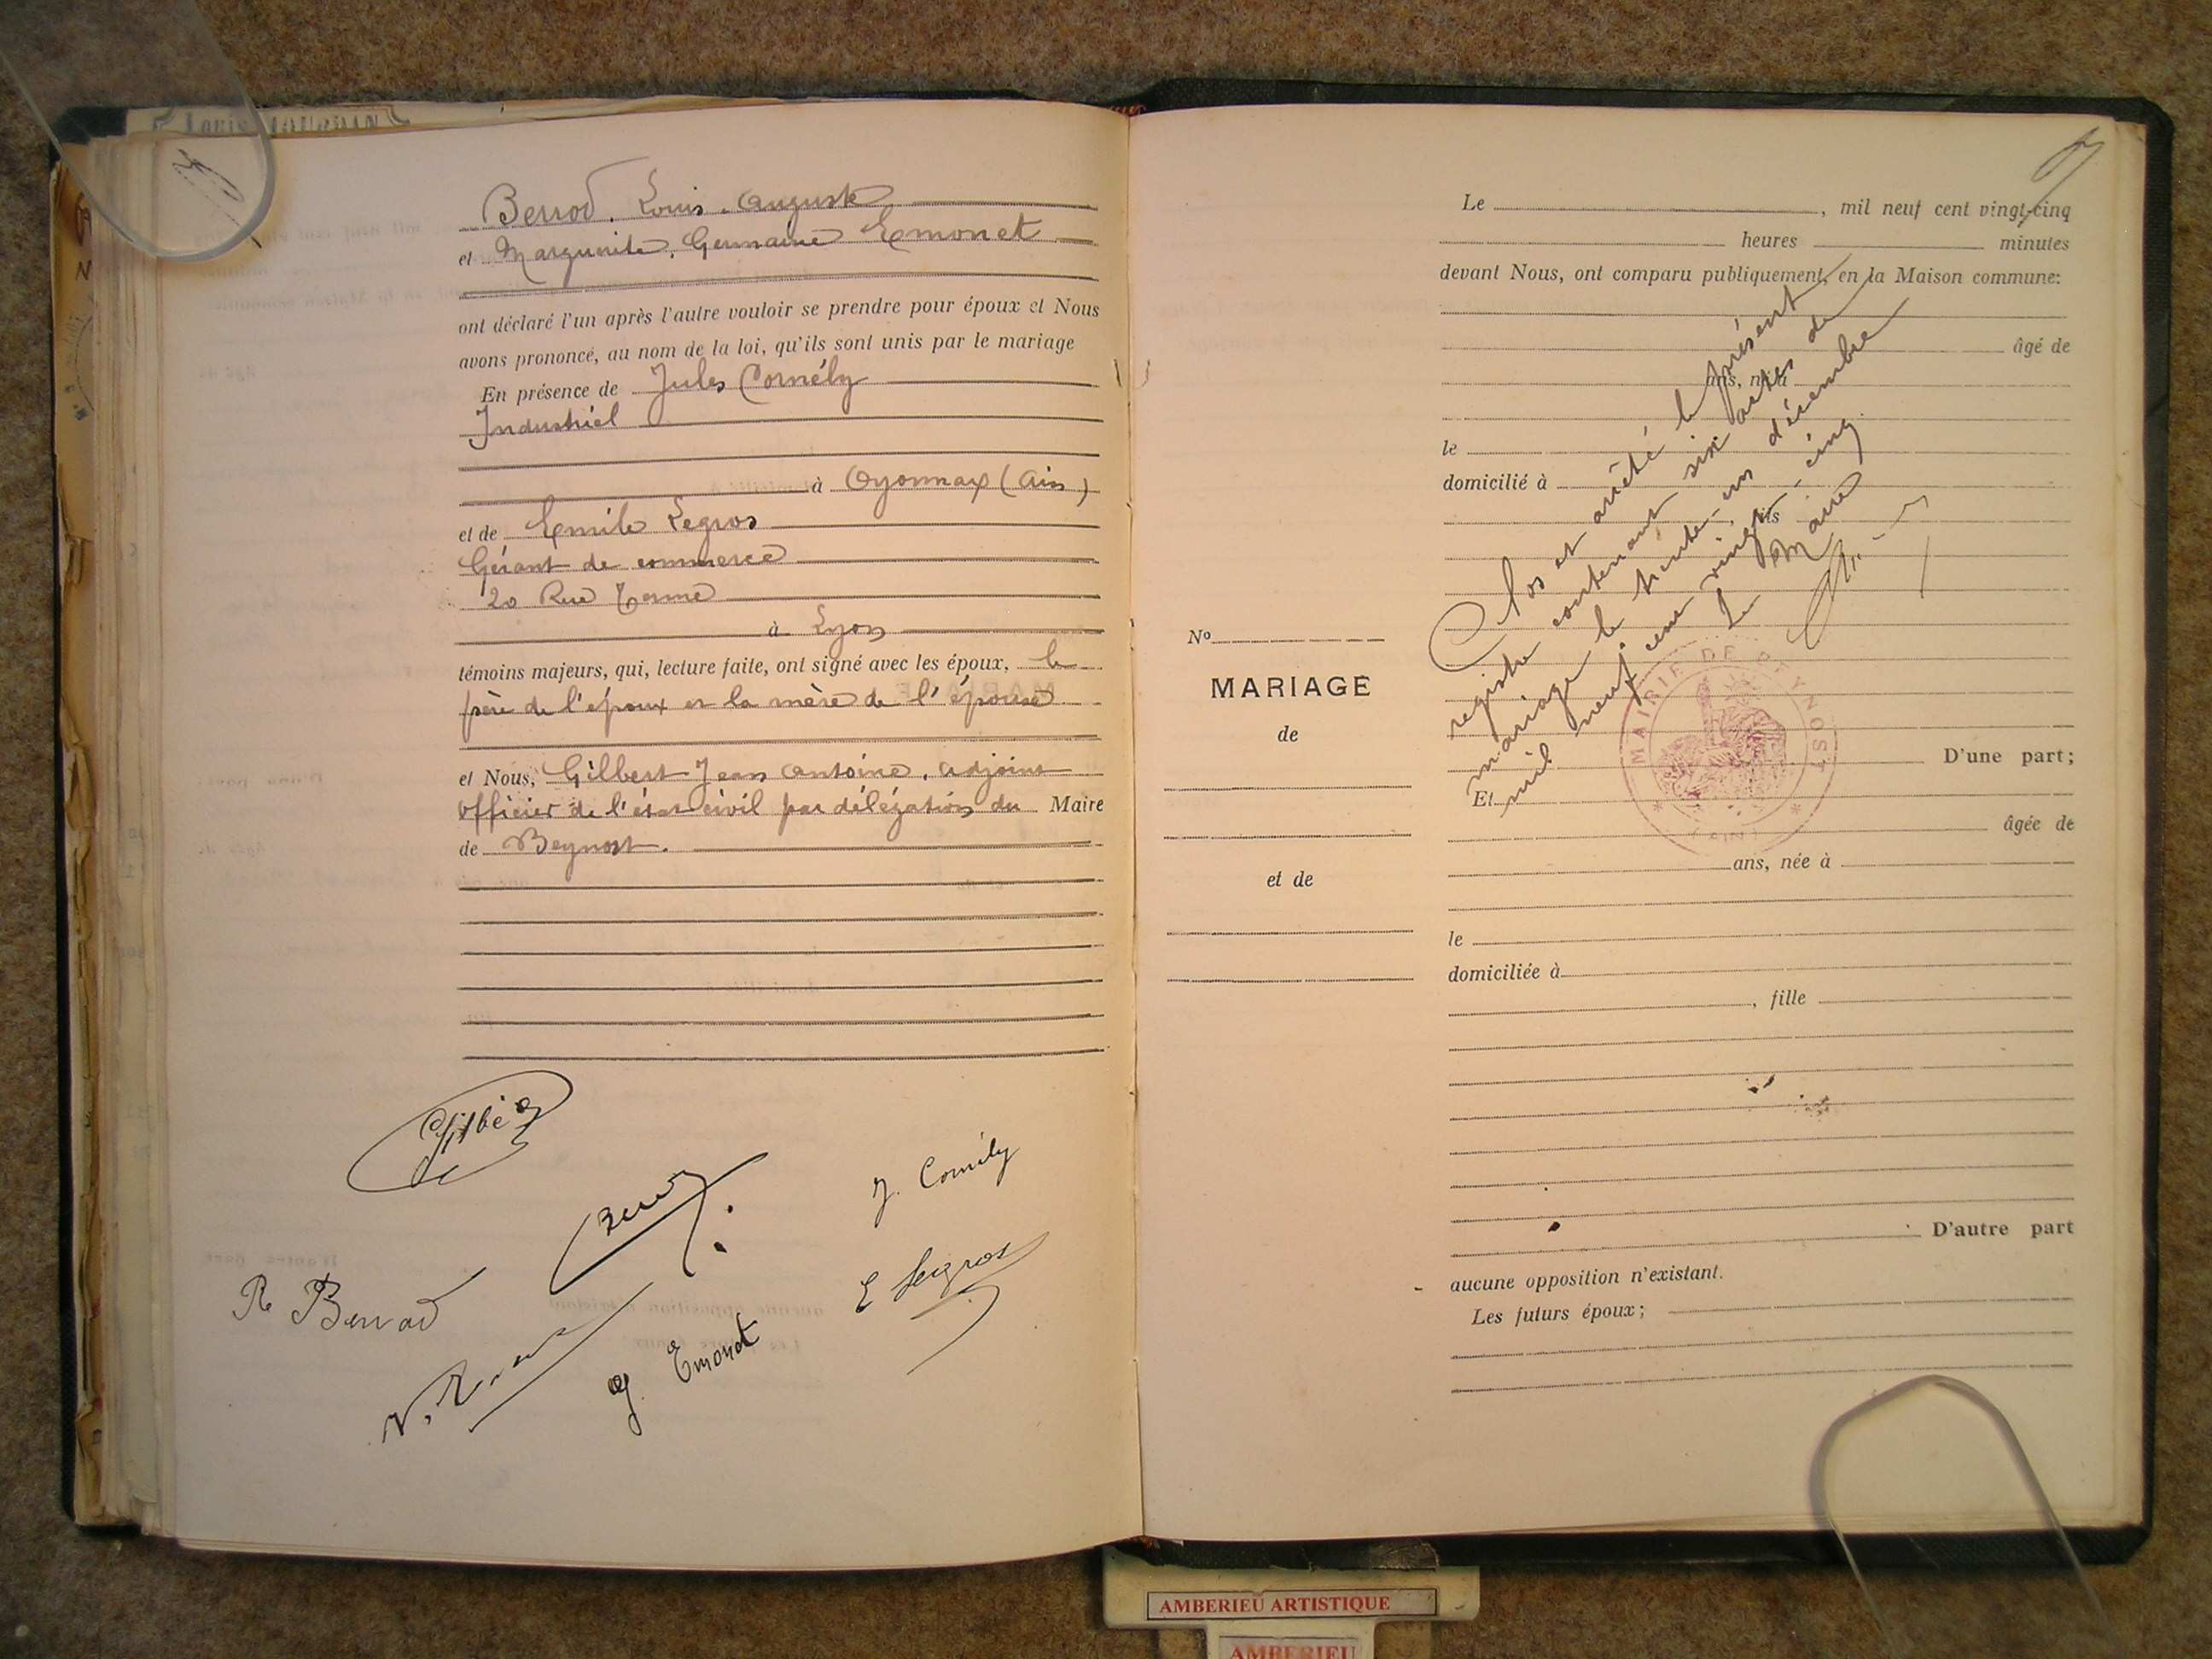 Berrod. Louis. Auguste
et Marguerite. Germaine Emonet
ont déclaré l'un après l'autre vouloir se prendre pour époux et Nous
avons prononcé, au nom de la loi, qu'ils sont unis par le mariage
En présence de Jules Cornély
Industriel
à Oyonnax (Ain)
et de Emile Legros
Gérant de commerce
20 Rue Terme
à Lyon
témoins majeurs, qui, lecture faite, ont signé avec les époux, le
père de l'époux et la mère de l'épouse
et Nous, Gilbert Jean Antoine. adjoint
officier de l'état-civil par délégation du Maire
de Beynost.
J. Cornély
R Berrod
E Legros
g. Emonet
Le , mil neuf cent vingt-cinq
heures minutes
devant Nous, ont comparu publiquement, en la Maison commune:
âgé de
ans, né à
le
domicilié à
fils
Clos et arrêté le présent
registre contenant six actes de
mariage le trente-un décembre
mil neuf cent vingt-cinq
Le Maire
MAIRIE DE BEYNOST
(AIN)
No
MARIAGE
de
et de
D'une part;
Et
âgée de
ans, née à
le
domiciliée à
, fille
D'autre part
aucune opposition n'existant.
Les futurs époux;
AMBERIEU ARTISTIQUE
AMBERIEU